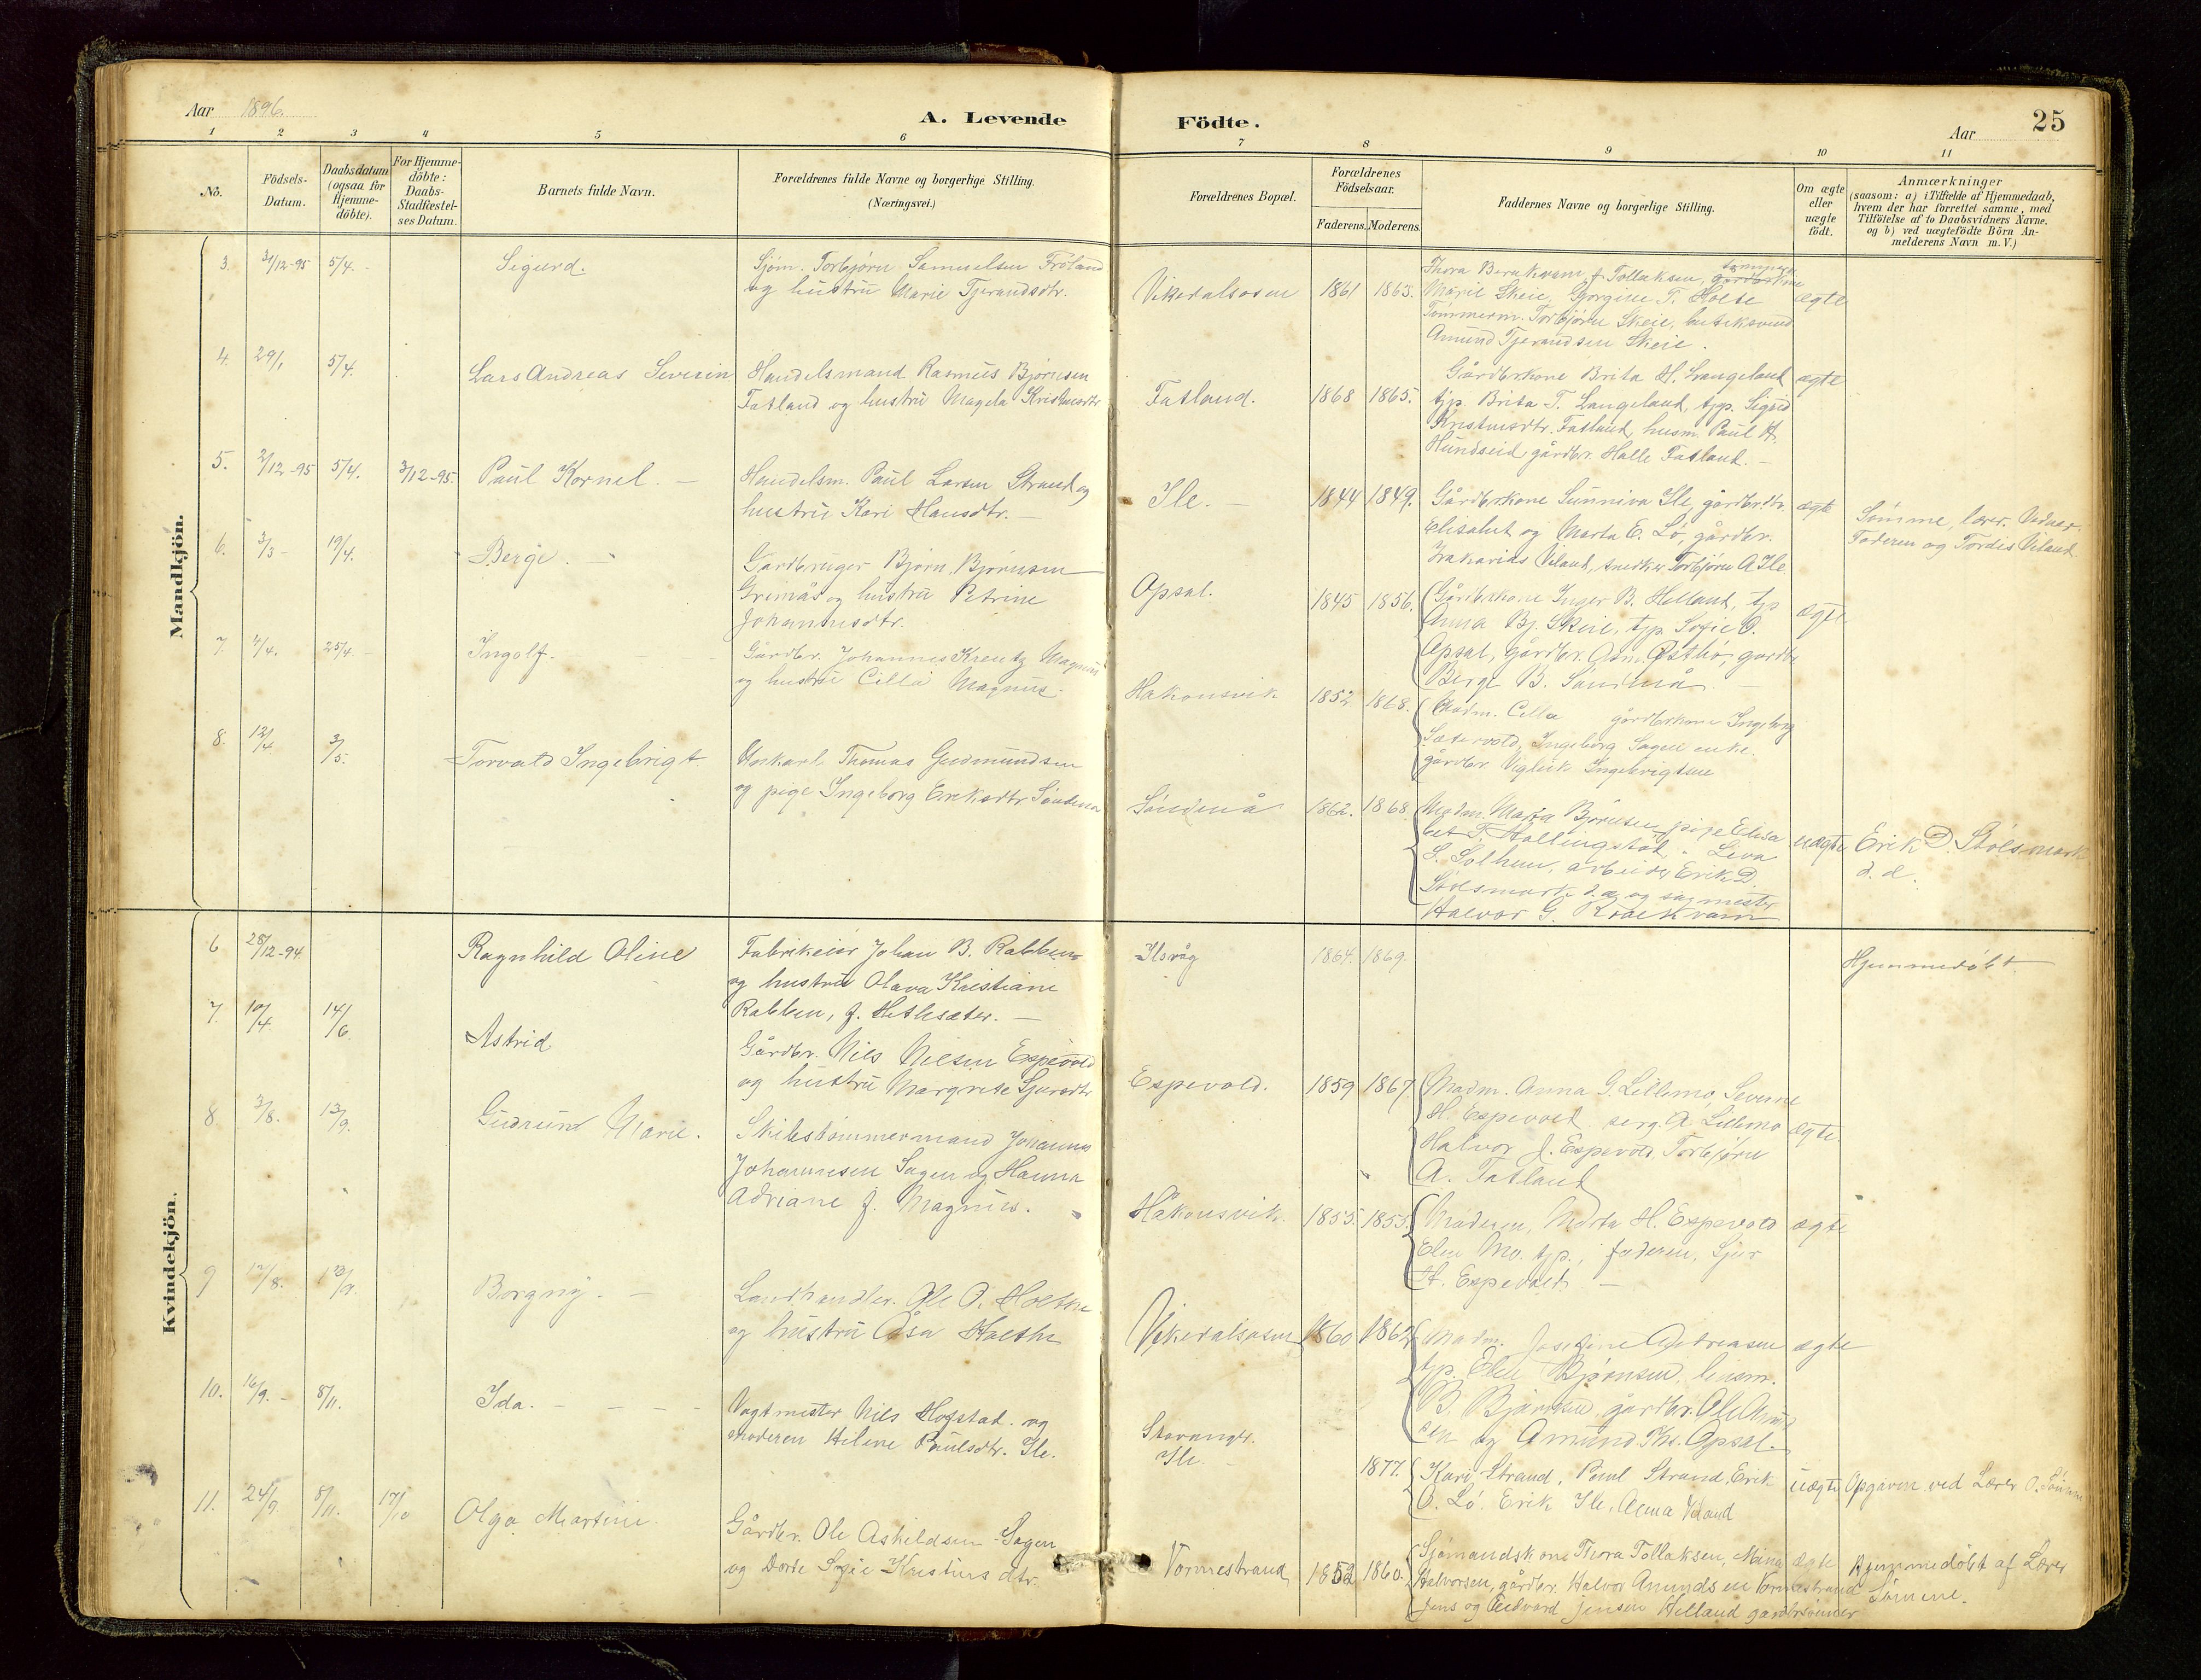 Aar 1896.
A. Levende Födte.
Aar
25
1 2 3 4 5 6 7 8 9 10 11
No.
Födsels-Datum.
Daabsdatum (ogsaa for Hjemme-döbte).
For Hjemme-döbte: Daabs-Stadfæstel-ses Datum.
Barnets fulde Navn.
Forældrenes fulde Navne og borgerlige Stilling.
(Næringsvei.)
Forældrenes Bopæl.
Forældrenes Födselsaar.
Faderens. Moderens.
Faddernes Navne og borgerlige Stilling.
Om ægte eller uægte födt.
Anmærkninger
(saasom: a) i Tilfælde af Hjemmedaab,
hvem der har forrettet samme, med
Tilföielse af to Daabsvidners Navne.
og b) ved uægtefödte Börn An-
melderens Navn m. V.)
Mandkjön.
3. 31/12-95 5/4. -
Sigurd.
Sjøm. Torbjørn Samuelsen Frøland
og hustru Marie Tjerandsdtr.
Vikedalsosen
1861 1863.
Thora Bernkvam, f. Tollaksen,
Marie Skeie, Gjorgine T. Holte
Tømmerm. Torbjørn Skeie,
Amund Tjerandsen Skeie.
ægte
4. 29/1 5/4.
Lars Andreas Severin
Handelsmand Rasmus Bjørnsen
Fatland og hustru Magela
Fatland.
1868 1865.
Gårdbrkone Brita H. Langeland
tjp. Brita T. Langeland, tjp. Sigrid
Kristensdtr. Fatland, husm. Paul H.
Hundseid, gårdbr. Halle Fatland. -
ægte
5. 2/12-95 5/4. 3/12-95.
Paul Kornel. -
Handelsm. Paul Larsen Strand og
hustru Kari Hansdtr. -
Ile. -
1844 1849.
Gårdbrkone Sunniva Ile, gårdbrdtr.
Elisabet og Marta E. Lø, gårdbr.
Zakarias Viland, snedker Torbjørn A Ile
ægte
Sømme, lærer. Vidner:
Faderen og Tordis Viland
6. 3/3 - 19/4.
Berge. -
Gardbruger Bjørn Bjørnsen
Grimås og hustru Petrine
Johannesdtr.
Opsal.
1845 1856.
Gårdbrkone Inger B. Helland, tjp
Anna Bj. Skeie, tjp. Sofie O.
Opsal, gårdbr. Asm. Østbø, gardbr
Berge B.
ægte
7. 4/4. 25/4. -
Ingolf. - - -
Gårdbr. Johannes Kreutz Magnus
og hustru Cilla Magnus.
Håkonsvik
1852 1868.
Madm. Cilla gårdbrkone Ingeborg
Sætervold, Ingeborg Sagen enke.
gårdbr. Vigleik Ingebrigtsen
8. 12/4 3/5.
Torvald Ingebrigt.
Ungkarl Thomas Gudmundsen
og pige Ingeborg Eriksdtr Søndenå
Søndenå
1862. 1868.
Madm. Marta Bjørnsen, pige Elisa
bet T. Hallingstad. Liva
S. Solheim, arbeider Erik D.
Stølsmark d.æ. og sagmester
Halvor G. Kvaleskvam
uægte
Erik D. Stølsmark
d. æ.
Kvindekjön.
6 28/12-94
Ragnhild Oline
Fabrikeier Johan B. Rabben
og hustru Olava Kristiane
Rabben, f. Hetlesæter. -
Ilsvåg
1864. 1869.
Hjemmedøbt
7. 10/4 14/6
Astrid
Gårdbr. Nils Nilsen Espevold
og hustru Margrete Sjursdtr
Espevold.
1859 1867.
Madm. Anna G. Lillemo, Severine
H. Espevold. serg. A. Lillemo
Halvor J. Espevold, Torbjørn
A. Fatland
ægte.
8 3/8. 13/9.
Gudrund Marie.
Skibstømmermand Johannes
Johannesen Sagen og Hanna
Adriane f. Magnus.
Håkonsvik.
1855. 1855.
Moderen, Marta H. Espevold
Elen Mo. tjp., faderen, Sjur
H. Espevold. -
ægte
9 12/8. 13/9.
Borgny. -
Landhandler. Ole O. Holthe
og hustru Åsa Holthe
Vikedalsosen
1860 1862
Madm. Josefine Andreasen
tjp. Elen Bjørnsen, husm.
B. Bjørnsen, gårdbr. Ole Amund
sen og Amund Ths. Opsal.
ægte
10. 16/9. - 8/11.
Ida. - - - -
Vagtmester Nils Hogstad. og
Moderen Helene Paulsdtr. Ile.
Stavanger.
Ile. -
1877.
Kari Strand, Paul Strand, Erik
O. Lø. Erik Ile, Alma Viland
uægte
Opgaven ved Lærer O. Sømme
11. 24/9. 8/11. 17/10
Olga Martine.
Gårdbr. Ole Askildsen Sagen
og Dorte Sofie Kristinsdtr.
Vormestrand
1852 1860.
Sjømandskone Thora Tollaksen, Mina
Halvorsen, gårdbr. Halvor Amundsen Vormestrand
Jens og Edvard Jensen Helland gårdbrsønner
ægte
Hjemmedøbt af Lærer
Sømme.